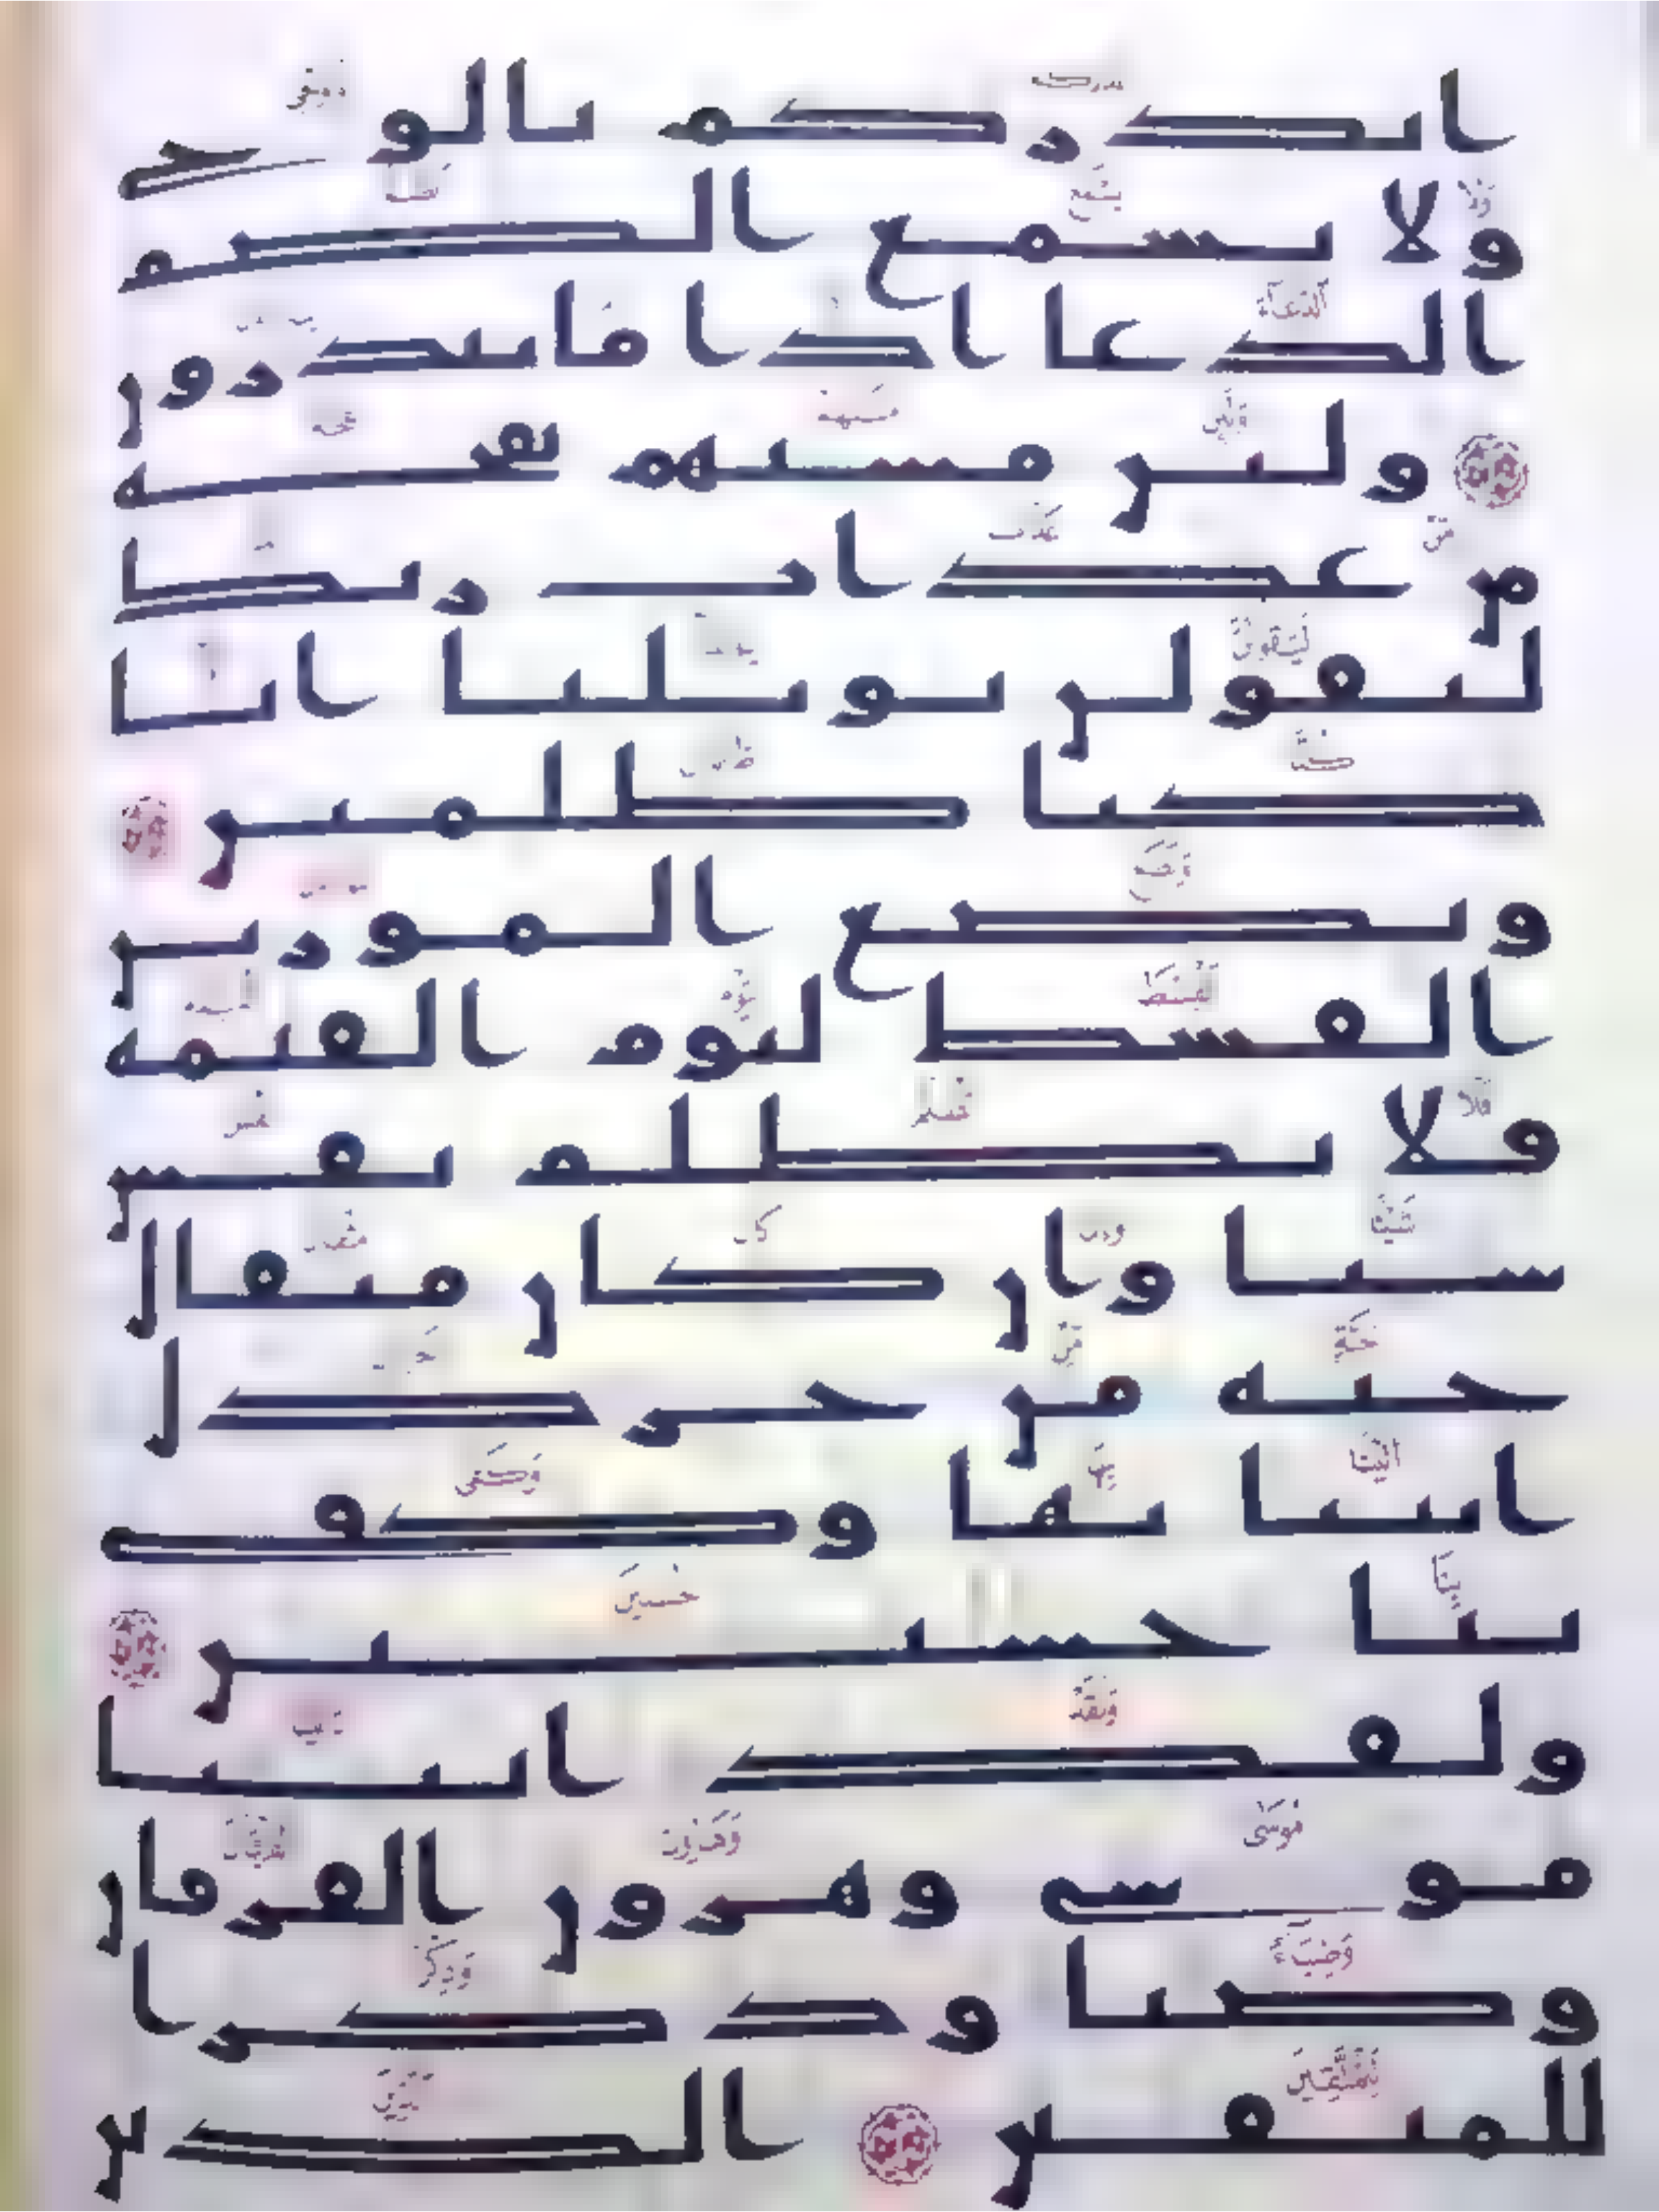 انذركم بالوحي
ولا يسمع الصم
الدعا اذا ما ينذرون
ولين مستهم نفحه
من عذاب ربك
ليقولن يويلنا انا
كنا ظلمين
ونضع الموزين
القسط ليوم القيمه
فلا تظلم نفس
شيا وان كان مثقال
حبه من خردل
اتينا بها وكفى
بنا حسبين
ولقد اتينا
موسى وهرون الفرقان
وضيا وذكرا
للمتقين الذين